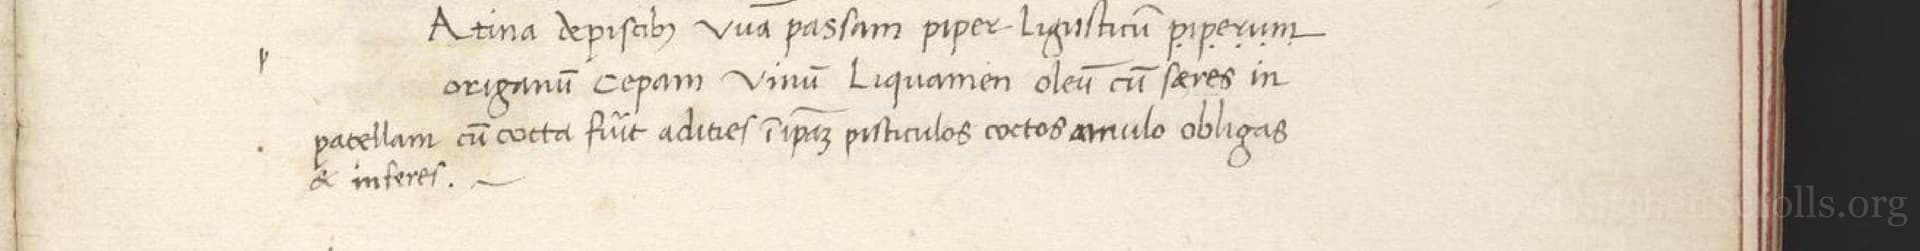 p
Atina depiscib; Vuā passam piper Ligusticū p̣ịp̣ẹṛụṃ
origanū Cepam Vinū Liquamen oleū cū særes in
patellam cū cocta fuīt adities ī ipaȝ pisticulos coctos amulo obligas
& inferes.